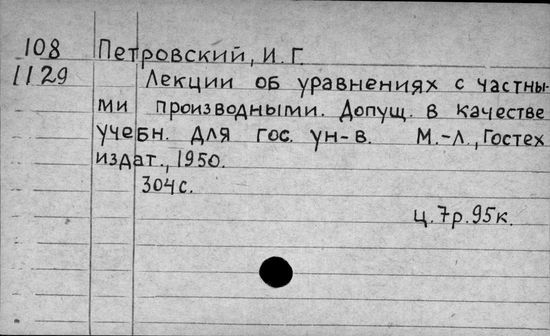 108 Петровский, И. Г.
1129 Лекции об уравнениях с частны-
ми производными. Допущ. в качестве
учебн. для гос. ун-в. М.-Л., Гостех
издат., 1950.
304 с.
ц. 7р. 95к.